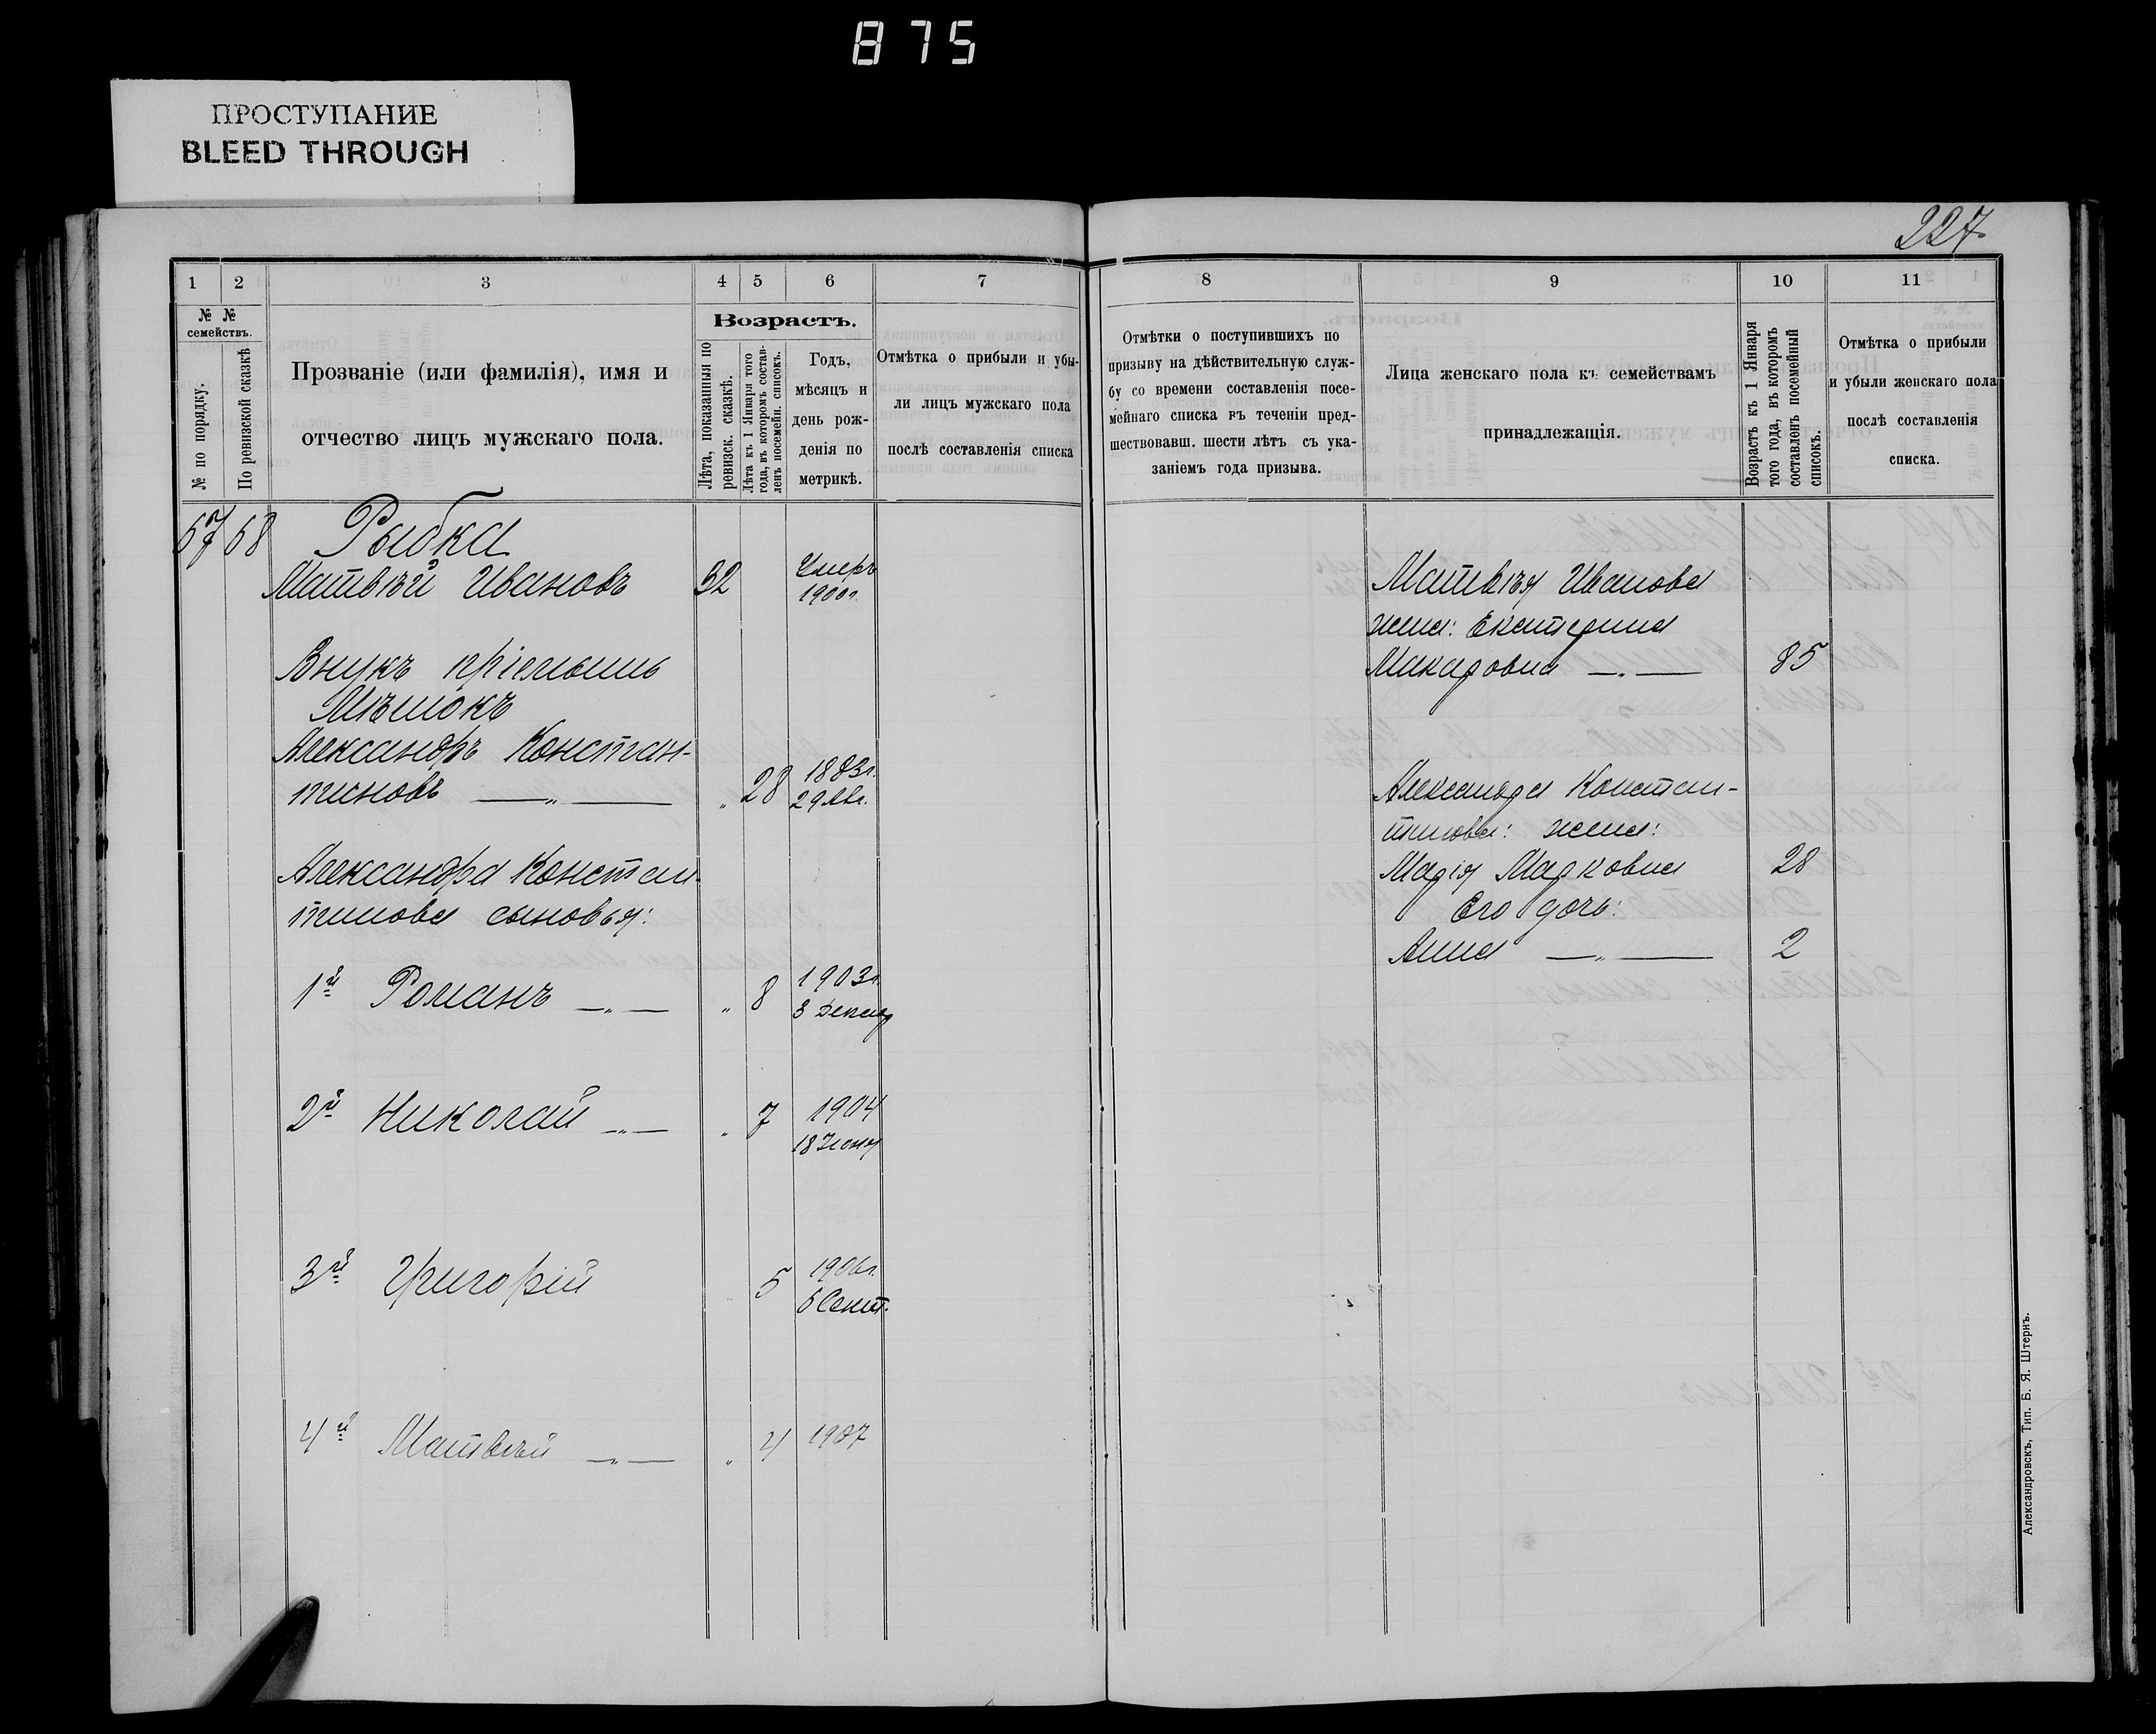 875
ПРОСТУПАНИЕ
BLEED THROUGH
227
1 2 3 4 5 6 7 8 9 10 11
№ №
семействъ.
№ по порядку.
По ревизской сказкѣ
Прозваніе (или фамилія), имя и
отчество лицъ мужскаго пола.
Возрастъ.
Лѣта, показанныя по
ревизск. сказкѣ.
Лѣта къ 1 Января того
года, въ которомъ состав-
ленъ посемейн. списокъ.
Годъ,
мѣсяцъ и
день рож-
денія по
метрикѣ.
Отмѣтка о прибыли и убы-
ли лицъ мужскаго пола
послѣ составленія списка
Отмѣтки о поступившихъ по
призыву на дѣйствительную служ-
бу со времени составленія посе-
мейнаго списка въ теченіи пред-
шествовавш. шести лѣтъ съ ука-
заніемъ года призыва.
Лица женскаго пола къ семействамъ
принадлежащія.
Возрастъ къ 1 Января
того года, въ которомъ
составленъ посемейный
списокъ.
Отмѣтка о прибыли
и убыли женскаго пола
послѣ составленія
списка.
67 68 Рыбка
Матвѣй Ивановъ 32 Умеръ
1900г.
Внукъ пріемышъ
Мѣшокъ
Александръ Констан-
тиновъ —„— „ 28 1883г.
29 Авг.
Александра Констан-
тинова сыновья:
1й Романъ —„— „ 8 1903г.
3 Декаб
2й Николай —„— „ 7 1904
18 Іюня
3й Григорій „ 5 1906г.
6 Сент.
4й Матвѣй —„— „ 4 1907
Матвѣя Иванова
жена: Екатерина
Макаровна —„— 85
Александра Констан-
тинова: жена:
Марія Марковна 28
Его дочь:
Анна —„— 2
Александровскъ, Тип. Б. Я. Штернъ.